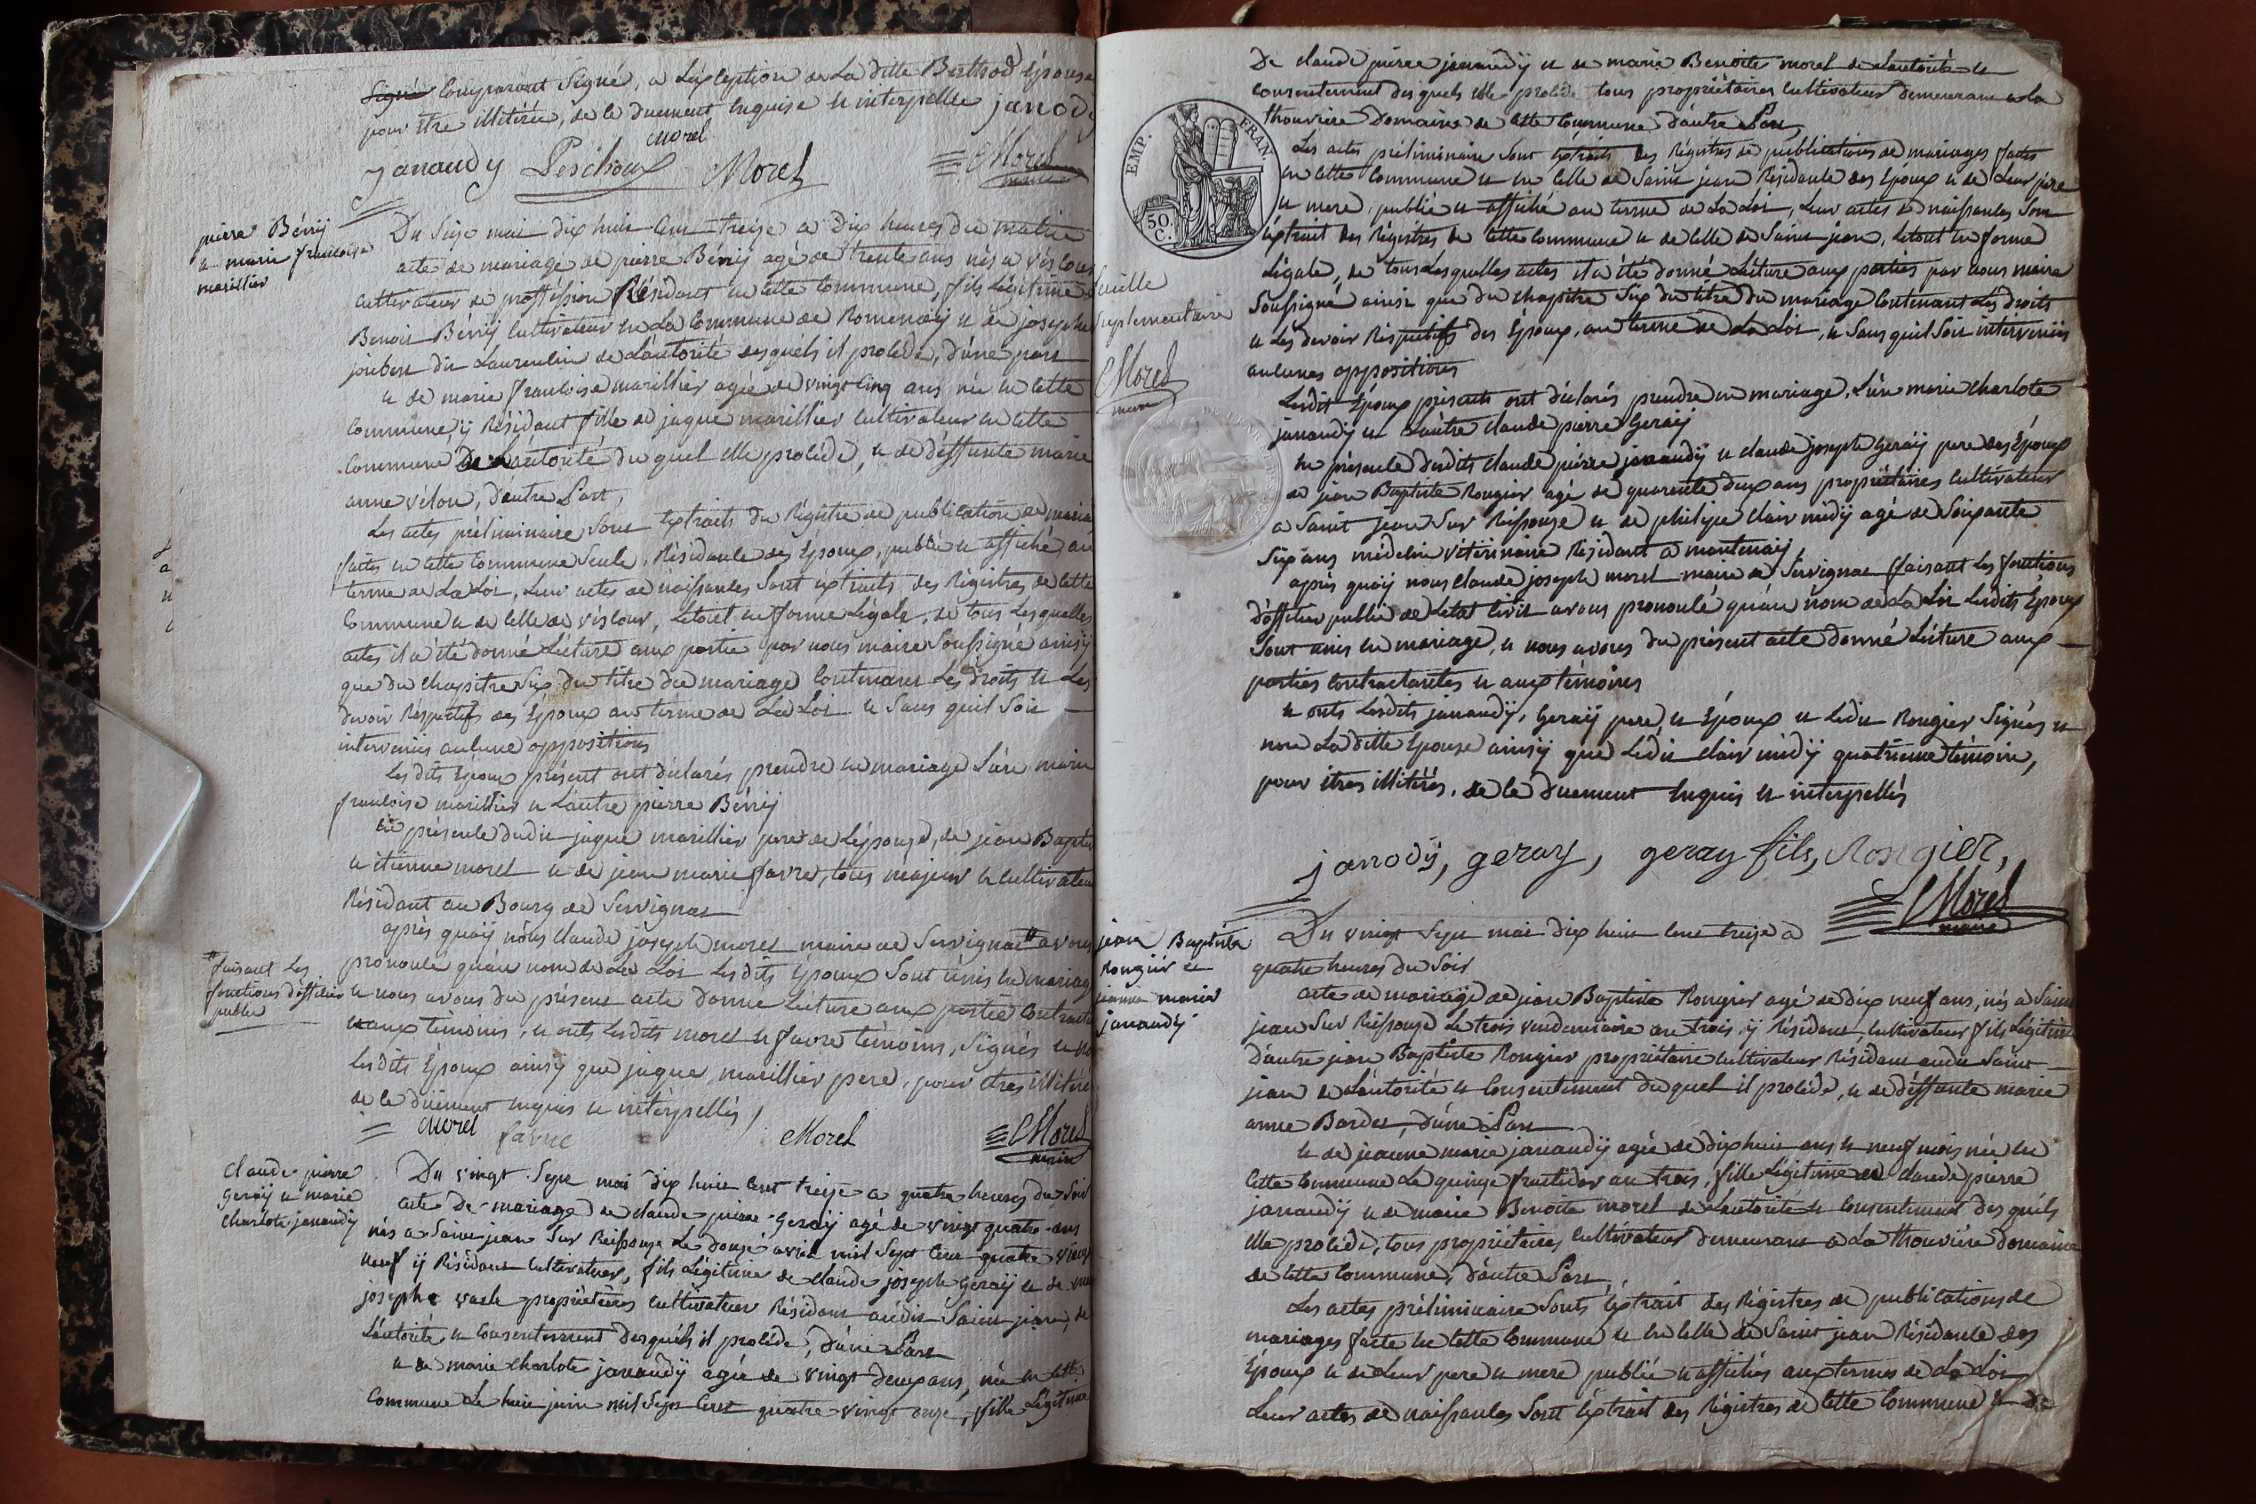 Signé comparant Signé, a Léxception de La ditte Berthod Epouse
pour être illitérée, de ce duement Enquise et interpellée janody
morel
janaudy Peschoux Morel CMorel
maire
pierre Bérrÿ
et marie francoise
marillier
Du Seize mai dix huit Cent treize a Dix heures du matin
acte de mariage de pierre Bérrÿ agé de trente ans nés a
cultivateur de proffession Résidant en cette Commune, fils Légitime de
Benoit Bérrÿ Cultivateur en La Commune de Romenaÿ et de josephe
joubert dit Laurenlin de Láutorité desquels il procéde, dúne part
et de marie francoise marillier agée de vingt Cinq ans née en cette
Commune ÿ Résidant fille de jaque marillier cultivateur en cette
Commune De Láutorité du quel elle procéde, et de déffunte marie
anne vélou, d'áutre Part,
Les actes préliminaire Sont Extraits du Régistre de publication de maria
faites en cette Commune Seule, Résidance des Époux, publié et affiché au
terme de La Loi, Leur actes de naissances Sont Extraits des Régistres de cette
Commune et de celle de , Letout en forme Légale, de tous Lesquelles
actes il a été donné Lécture aux partie par nous maire Soussigné ainsÿ
que du chapitre Six du titre du mariage Contenant Les droits et Les
devoir Respectifs des Époux au terme de La Loi et Sans quil Soit
intervenüs aucune oppositions
Les dits Époux présent ont déclarés prendre en mariage Lúne marie
francoise marillier et Láutre pierre Bérrÿ
En présence dudit jaque marillier pere de Lépouse, de jean Baptis
et étienne morel et de jean marie favre, tous majeur et cultivateur
Résidant au Bourg de Servignat
après quaÿ nous Claude joseph morel maire de Servignat avons
*faisant Les
fonctions dófficier
public
prononcé quáu nom de La Loi Lesdits Époux Sont únis en mariage
et nous avons du présent acte donné Lécture aux partie contracta
et aux témoins, et onts Lesdits morel et favre témoins, Signés et non
Lesdits Époux ainsÿ que jaque marillier pere, pour êtres illitérés
de ce duement enquis et intérpellés,
morel favre CMorel CMorel
maire
Claude pierre
Geraÿ et marie
charlote janaudÿ
Du vingt Sept mai dix huit Cent treize a quatre heures du Soir
acte de mariage de claude pierre Geraÿ agé de vingt quatre ans
nés a Saint jean Sur Reissouze Le douze avril mil Sept Cent quatre vingt
neuf ÿ Résidant Cultivateur, fils Légitime de claude joseph Geraÿ et de
josephe vacle propriétaires cultivateur Résidant audit Saint jean, de
Láutorité et Consentement desquéls il procéde, dúne Part
et de marie charlote janaudÿ agée de vingt deux ans, née en cette
Commune Le huit juin mil Sept Cent quatre vingt onze, fille Légitime
De claude pierre janaudÿ et de marie Benoite morel de Láutorité et
consentement des quels elle procéde tous propriétaires cultivateur demeurant a La
thouviere Domaine de cette Commune dáutre Part,
EMP. FRAN.
50.
C.
Les actes préliminaire Sont Extraits des Régistres de publications de mariages faites
en cette Commune et en celle de Saint jean Résidance des Époux et de Leur pere
et mere, publié et affiché au terme de La Loi, Leur actes de naissances Sont
Extrait des Régistres de cette Commune et de celle de Saint jean, Letout en forme
Légale, de tous Lesquelles actes il a été donné Lécture aux parties par nous maire
Soussigné ainsi que du chapitre Six du titre du mariage Contenant Les droits
et Les devoir Respectifs des Époux, au terme de La Loi, et Sans quil Soit intervenüs
aucunes oppositions
feuille
Suplementaire
CMorel
maire
Lesdit Époux présents ont déclarés prendre en mariage, Lún marie charlote
janaudÿ et Láutre claude pierre Geraÿ
En présence desdits claude pierre janaudÿ et claude joseph Geraÿ pere des Époux
de jean Baptiste Rongier agé de quarente deux ans propriétaires cultivateur
a Saint jean Sur Réissouze et de philipe clair midÿ agé de Soixante
Six ans médecin vétérinaire Résidant a montenaÿ,
après quaÿ nous claude joseph morel maire de Servignat faisant Les fonctions
dófficier public de Létat Civil avons prononcé quáu nom de La Loi Lesdits Époux
Sont únis en mariage, et nous avons du présent acte donné Lécture aux
parties contractantes et aux témoins
et onts Lesdits janaudÿ, Geraÿ pere et Époux et Ledit Rongier Signés et
non La ditte Épouse ainsÿ que Ledit clair midÿ quatrieme témoin,
pour êtres illitérés, de ce duement Enquis et interpellés
janodÿ, geray, geray fils, Rongier,
CMorel
maire
jean Baptiste
Rongier et
jeanne marie
janaudÿ
Du vingt Sept mai dix huit Cent treize a
quatre heures du Soir
acte de mariage de jean Baptiste Rongier agé de dix neuf ans, nés a Saint
jean Sur Reissouze Le trois vendemiaire an trois, ÿ Résidant, cultivateur fils Légitime
dáutre jean Baptiste Rongier propriétaire cultivateur Résidant audit Saint
jean de Láutorité et Consentement du quel il procéde, et de déffunte marie
anne Bardet, dúne Part
et de jeanne marie janaudÿ agée de dix huit ans et neuf mois née en
Cette Commune Le quinze fructidor an trois, fille Légitime de claude pierre
janaudÿ et de marie Benoite morel de Láutorité et Consentement des quéls
elle procéde, tous propriétaires cultivateur demeurant a La thouviére domaine
de cette Commune, dáutre Part
Les actes préliminaire Sonts Extrait des Régistres de publications de
mariages faite en cette Commune et en celle de Saint jean Résidance des
Époux et de Leur pere et mere publié et affichés aux termes de La Loi
Leur actes de naissances Sont Extrait des Régistres de cette Commune et de